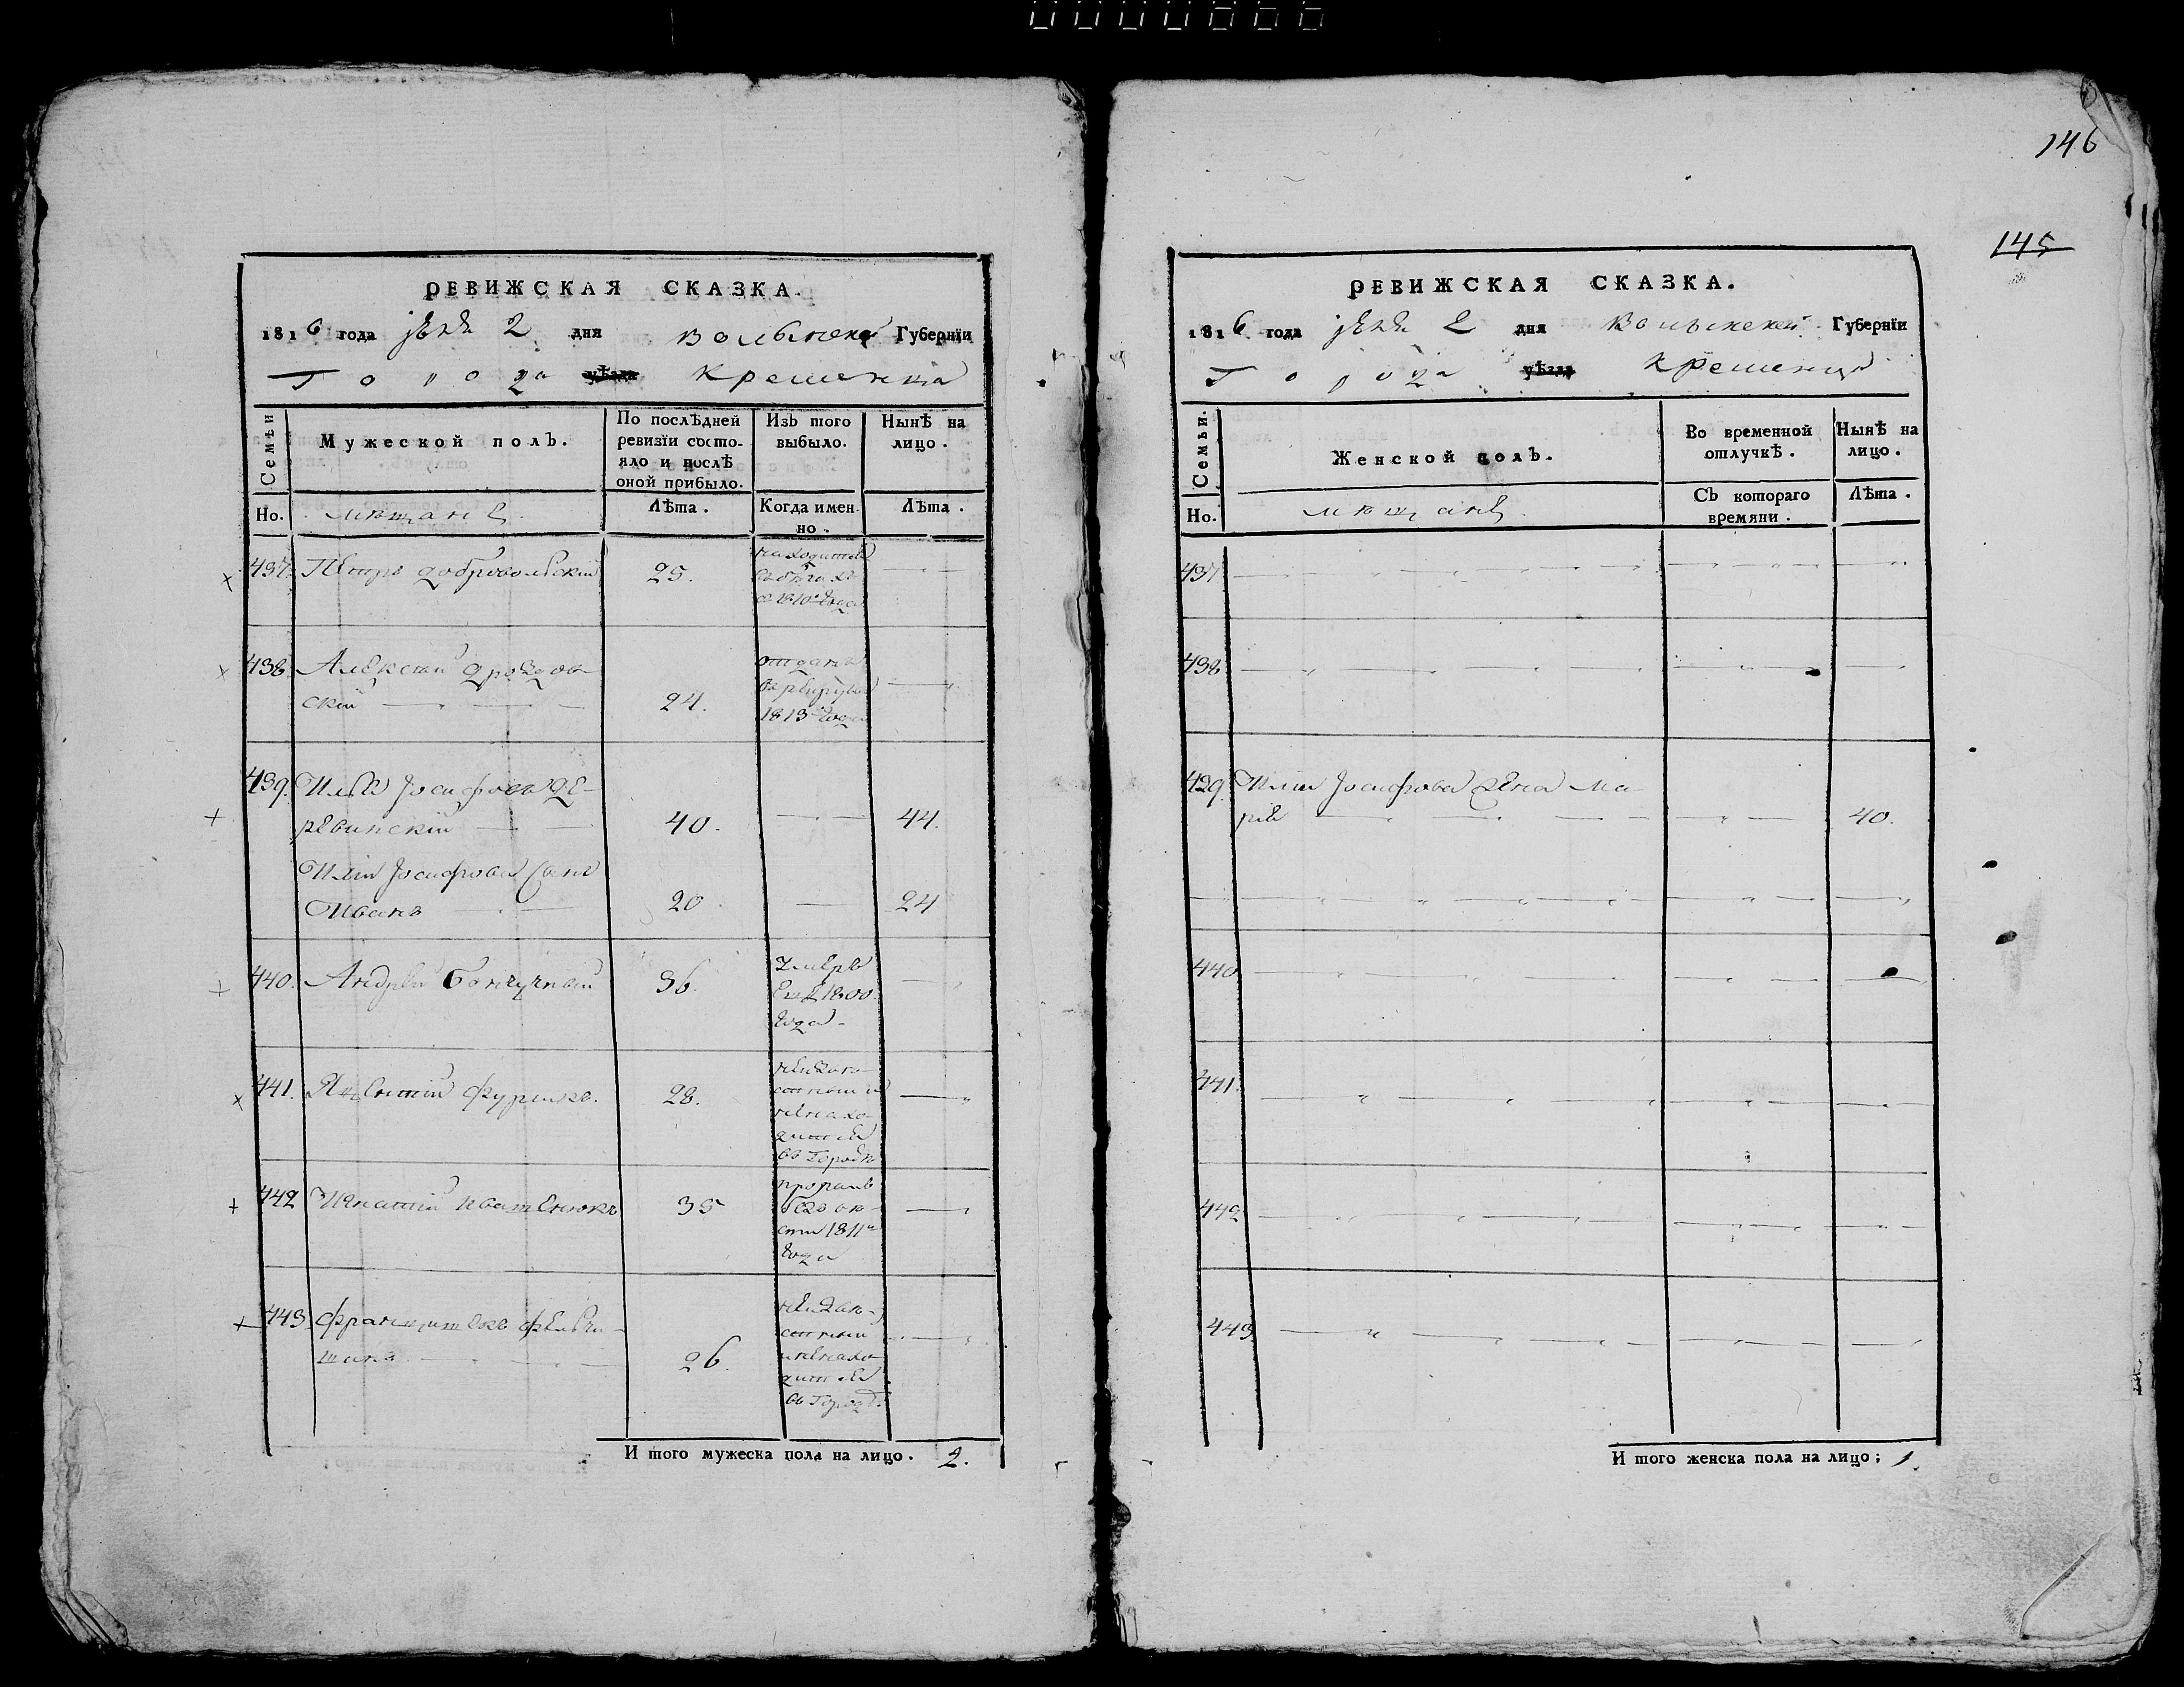 0000666
146
145
РЕВИЖСКАЯ СКАЗКА.
1816 года іюня 2 дня Волынской Губернїи
Города уѣзда Кременца
Семьи
Мужеской полъ.
По послѣдней ревизїи состо-
яло и послѣ
оной прибыло.
Изъ того
выбыло.
Нынѣ на
лицо.
Но.
мещане
Лѣта.
Когда имен-
но.
Лѣта.
437. Петръ Добровольский 25. находится
въ бѣгахъ
с 1810 года
438. Алексей Дроздов-
ский 24. отданъ
в рекруты
1813 года
439. Илья Іосифовъ Де-
ревинский 40. 44.
Ильи Іосифова Сынъ
Иванъ 20 24
440. Андрей 36. умеръ
еще 1800
года
441. 28. неизвѣ-
стный и
не нахо-
дится
въ Городѣ
442 Игнатий Квашенюкъ 35 пропалъ
безъ вѣ-
сти 1811
года
443. Францишекъ 26. неизвѣ-
стный
и не нахо-
дится
въ Городѣ.
И того мужеска пола на лицо. 2.
РЕВИЖСКАЯ СКАЗКА.
1816 года іюня 2 дня Волынской Губернїи
Города уѣзда Кременца
Семьи.
Женской полъ.
Во временной
отлучкѣ.
Нынѣ на
лицо.
Но.
мещане
Съ котораго
времяни.
Лѣта.
437
438
439 Ильи Іосифова Жена Ма-
рия 40.
440
441.
442
443
И того женска пола на лицо; 1.